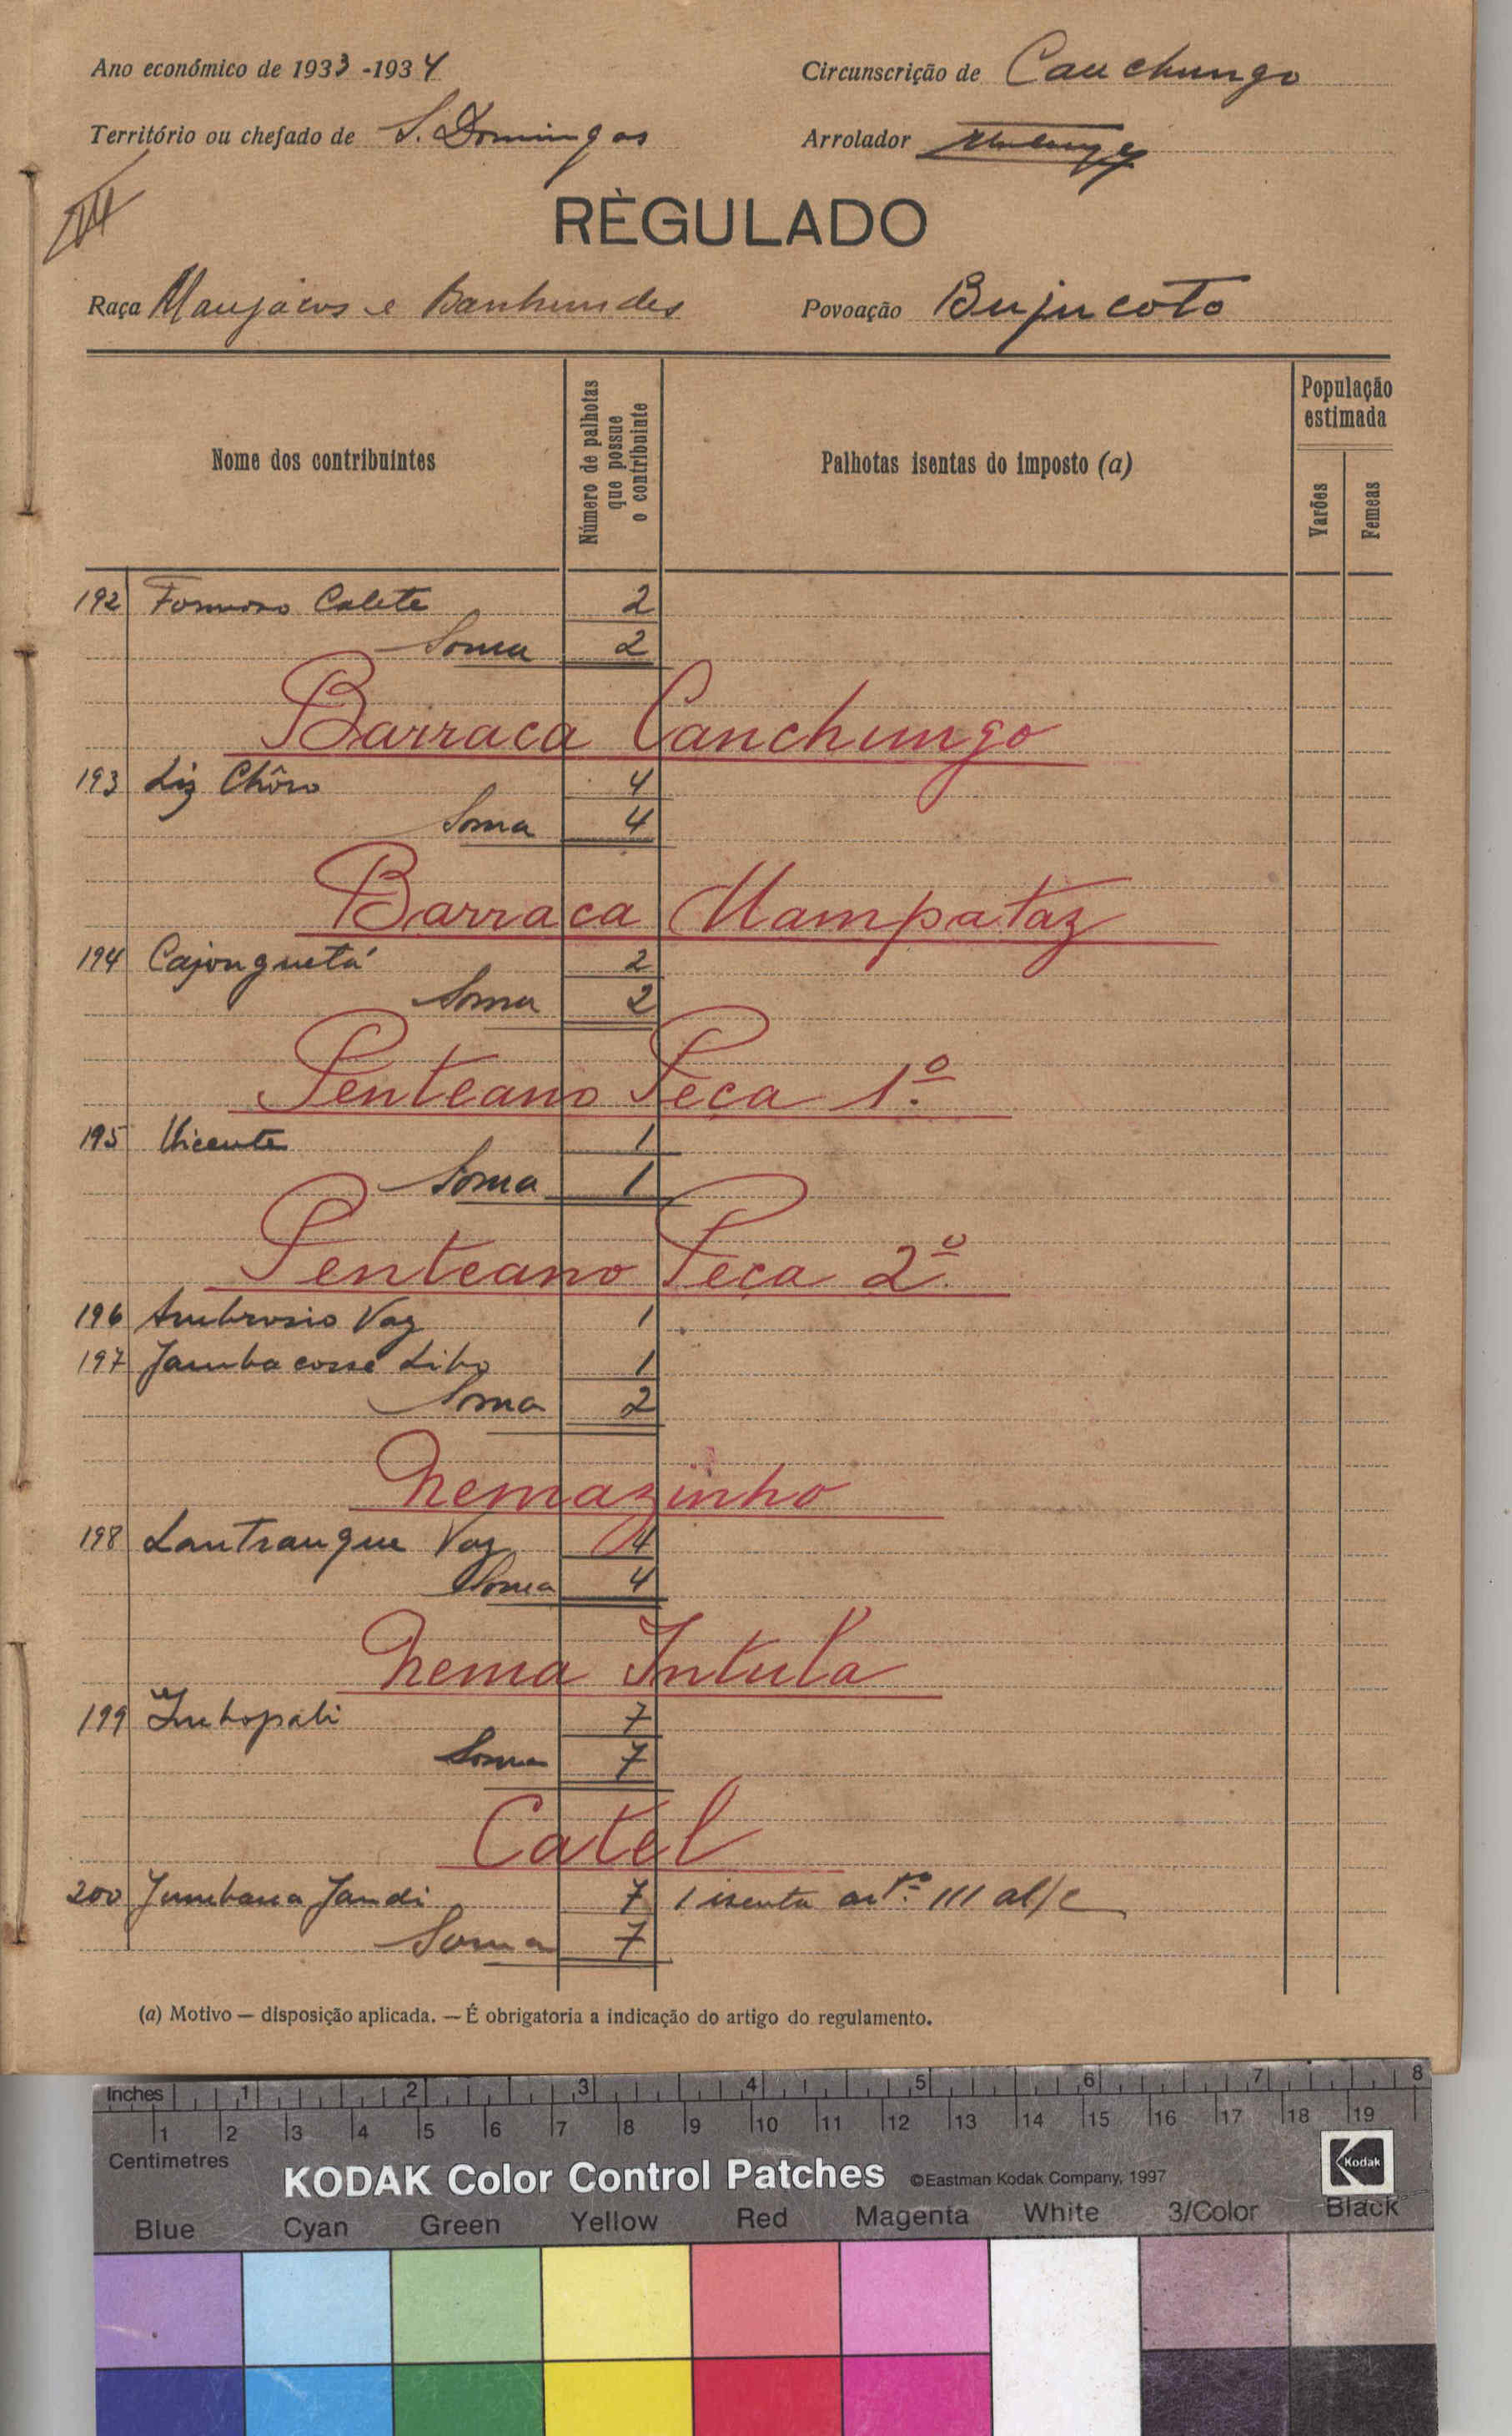 Ano económico de 1933-1934
Circunscrição de Canchungo
Território ou chefado de S. Domingos
Arrolador
RÈGULADO
Raça Manjacos e Banhundes
Povoação Bujucoto
Nome dos contribuintes
Número de palhotas que possue o contribuinte
Palhotas isentas do imposto (a)
População estimada
Varões
Femeas
192 Formoso Calete 2
Soma 2
Barraca Canchungo
193 Liz Chôro 4
Soma 4
Barraca Mampataz
194 Cajonguetá 2
Soma 2
Penteano Peca 1º
195 Vicente 1
Soma 1
Penteano Peca 2º
196 Ambrosio Vaz 1
197 Jambacosse Libo 1
Soma 2
Nemazinho
198 Lantrangue Vaz 4
Soma 4
Nema Intula
199 7
Soma 7
Catel
200 Jumbana Jandi 7 1 isenta artº 111 al/c
Soma 7
(a) Motivo — disposição aplicada. — É obrigatoria a indicação do artigo do regulamento.
Inches 1 2 3 4 5 6 7 8
1 2 3 4 5 6 7 8 9 10 11 12 13 14 15 16 17 18 19
Centimetres
KODAK Color Control Patches ©Eastman Kodak Company, 1997 Kodak
Blue Cyan Green Yellow Red Magenta White 3/Color Black